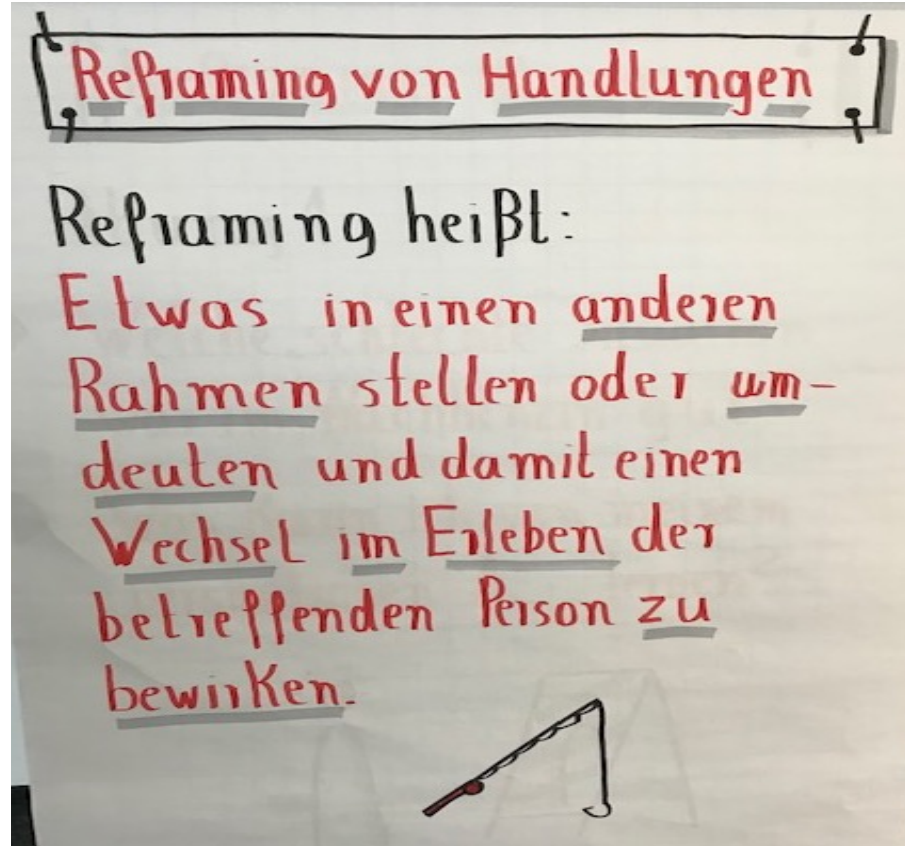 Reframing von Handlungen
Reframing heißt:
Etwas in einen anderen
Rahmen stellen oder um-
deuten und damit einen
Wechsel im Erleben der
betreffenden Person zu
bewirken.